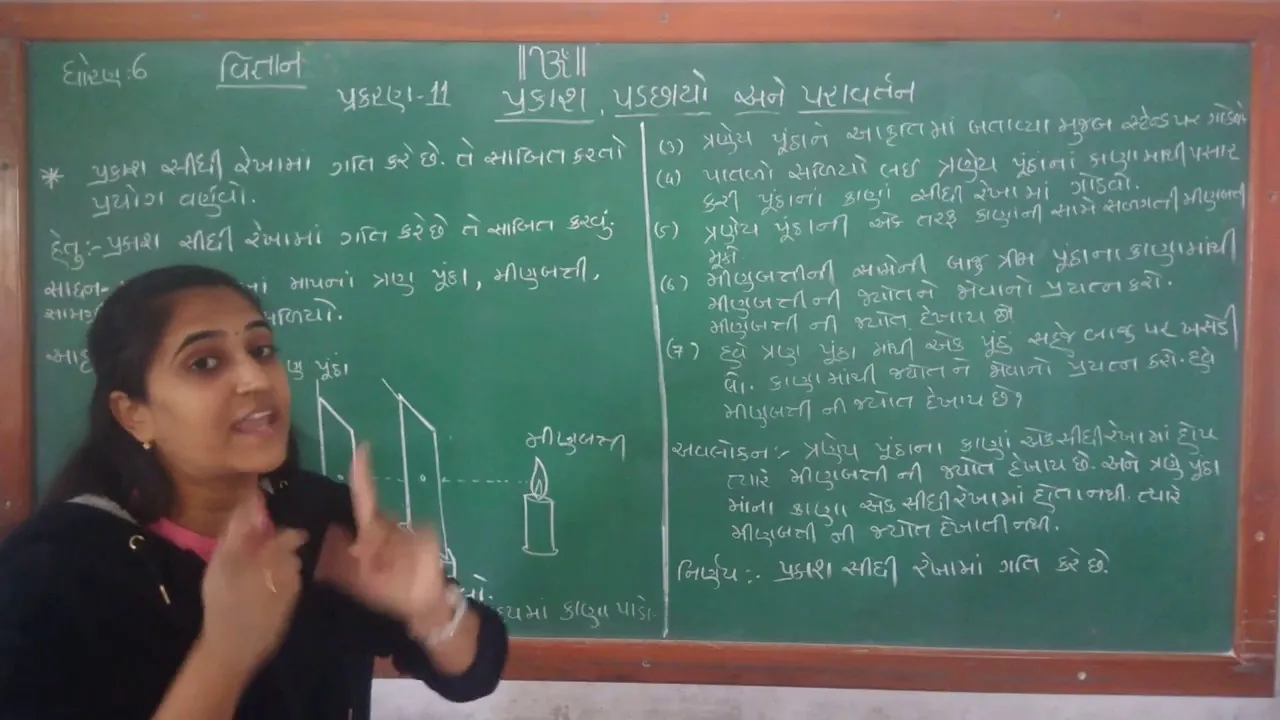 ધોરણ:6
વિજ્ઞાન
||ૐ||
પ્રકરણ-11 પ્રકાશ, પડછાયો અને પરાવર્તન
* પ્રકાશ સીધી રેખામાં ગતિ કરે છે. તે સાબિત કરતો
પ્રયોગ વર્ણવો.
હેતુ:- પ્રકાશ સીધી રેખામાં ગતિ કરે છે તે સાબિત કરવું.
સાધન- માપનાં ત્રણ પૂંઠા, મીણબત્તી,
પૂંઠા
મીણબત્તી
કાણા પાડો.
(3) ત્રણેય પૂંઠાને આકૃતિમાં બતાવ્યા મુજબ સ્ટેન્ડ પર ગોઠવો.
(4) પાતળો સળિયો લઈ ત્રણેય પૂંઠાનાં કાણામાંથી પસાર
કરી પૂંઠાનાં કાણાં સીધી રેખામાં ગોઠવો.
(5) ત્રણેય પૂંઠાની એક તરફ કાણાની સામે સળગતી મીણબત્તી
મૂકો.
(6) મીણબત્તીની સામેની બાજુ ત્રીજા પૂંઠાના કાણામાંથી
મીણબત્તીની જ્યોતને જોવાનો પ્રયત્ન કરો.
મીણબત્તી ની જ્યોત દેખાય છે
(7) હવે ત્રણ પૂંઠા માંથી એક પૂંઠું સહેજ બાજુ પર ખસેડી
લો. કાણામાંથી જ્યોત ને જોવાનો પ્રયત્ન કરો. હવે
મીણબત્તી ની જ્યોત દેખાય છે?
અવલોકન:- ત્રણેય પૂંઠાના કાણાં એક સીધી રેખામાં હોય
ત્યારે મીણબત્તી ની જ્યોત દેખાય છે. અને ત્રણે પૂંઠા
માંના કાણા એક સીધી રેખામાં હોતા નથી. ત્યારે
મીણબત્તી ની જ્યોત દેખાતી નથી.
નિર્ણય:- પ્રકાશ સીધી રેખામાં ગતિ કરે છે.